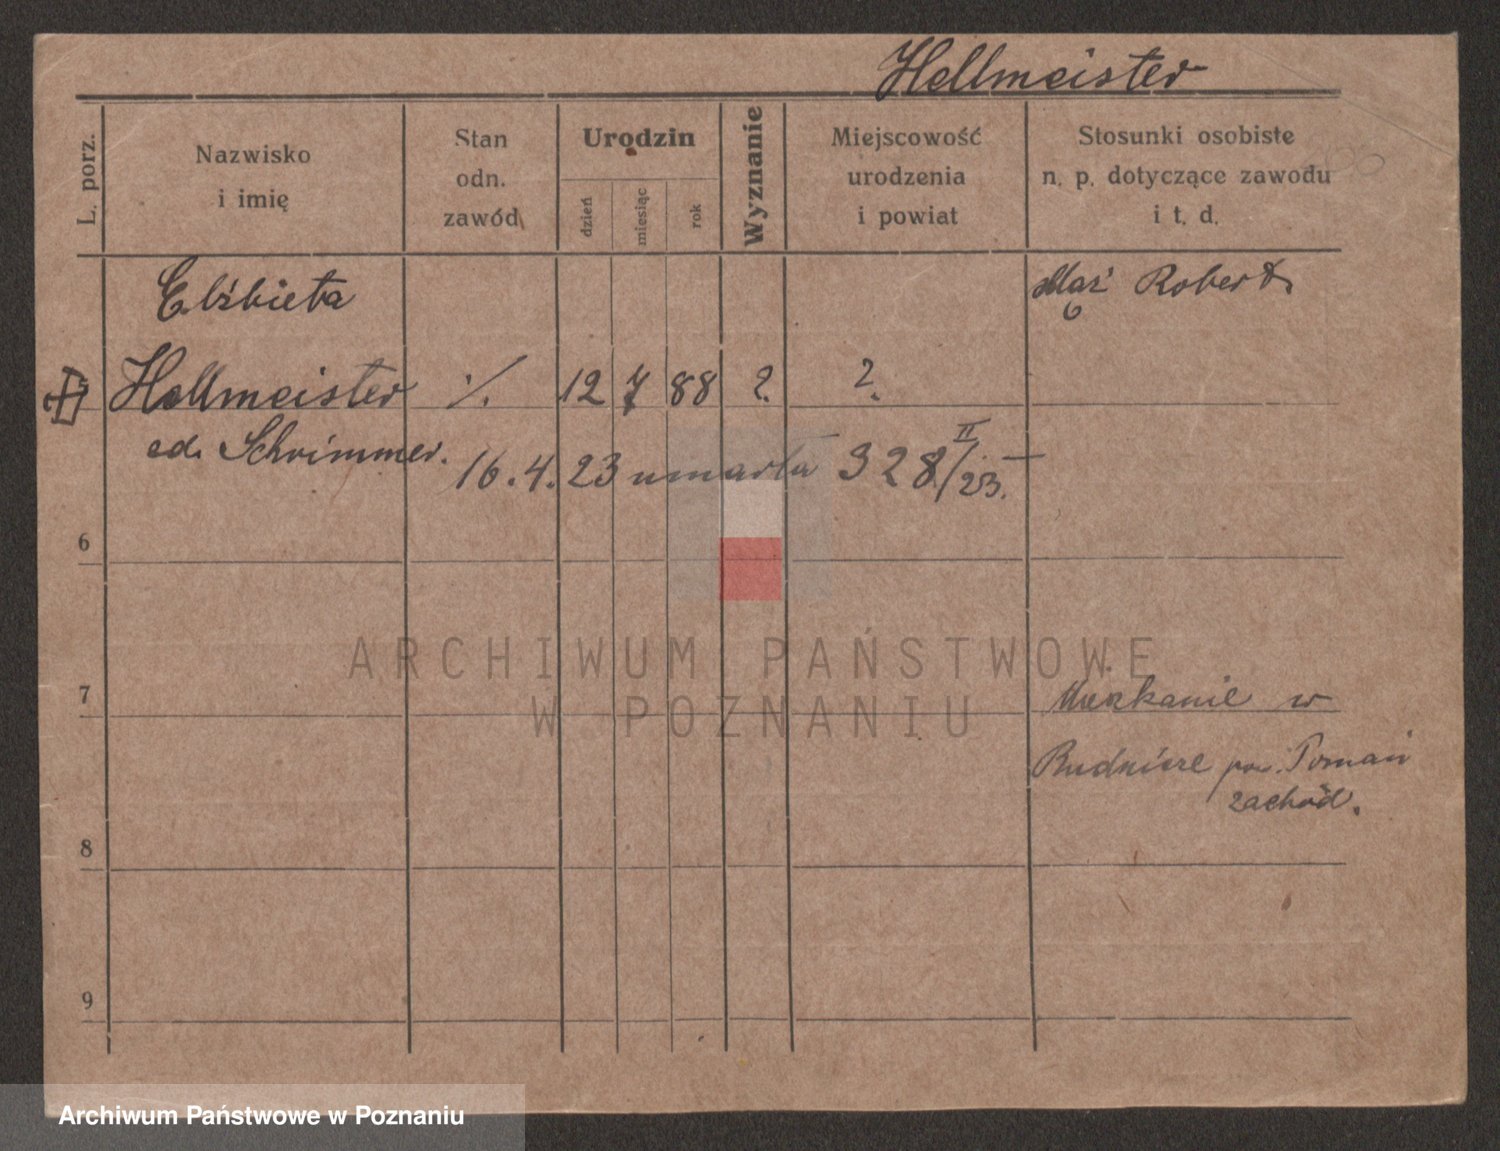 Hellmeister
L. porz.
Nazwisko
i imię
Stan
odn.
zawód
Urodzin
dzień
miesiąc
rok
Wyznanie
Miejscowość
urodzenia
i powiat
Stosunki osobiste
n. p. dotyczące zawodu
i t. d.
Elżbieta
Mąż Robert
Hellmeister ·/. 12 7 88 ? ?
Schrimmer.
16.4.23 umarła 328/23. II
6
ARCHIWUM PAŃSTWOWE
W POZNANIU
7
w
pow.
zachód.
8
9
Archiwum Państwowe w Poznaniu